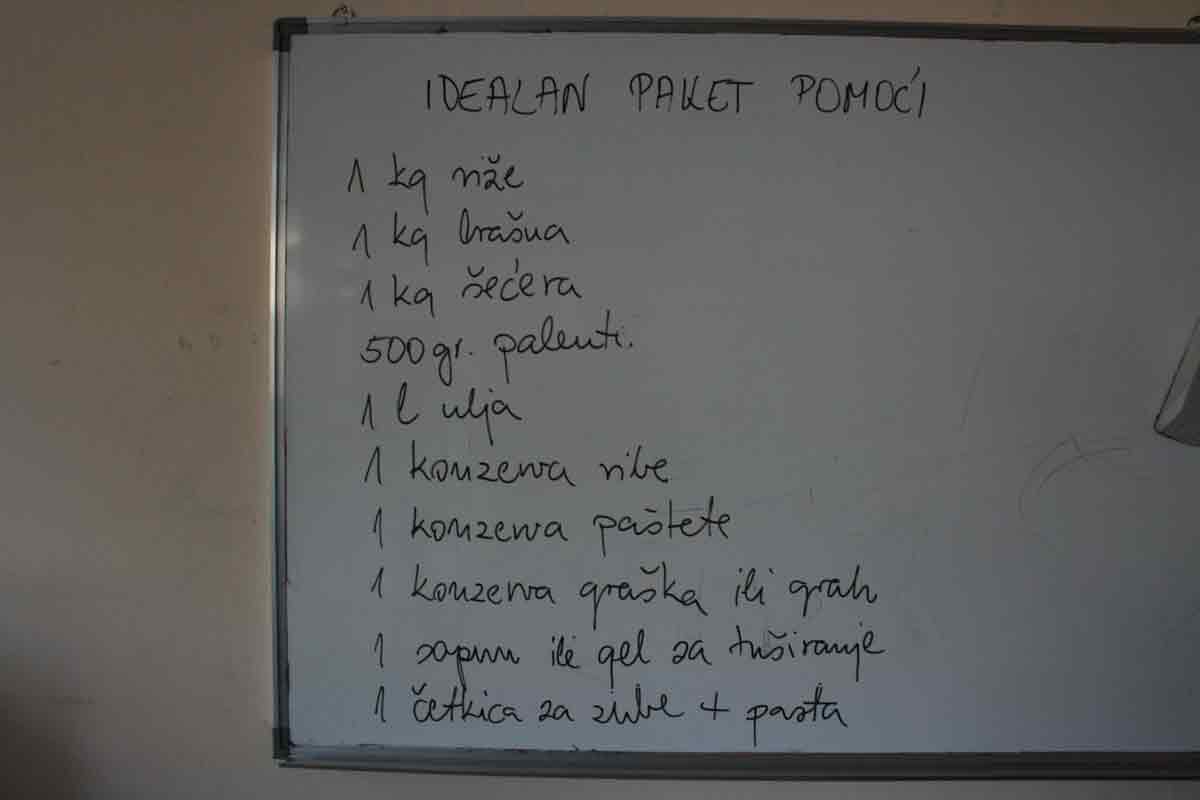 IDEALAN PAKET POMOĆI
1 kg riže
1 kg brašna
1 kg šećera
500 gr. palente.
1 l ulja
1 konzerva ribe
1 konzerva paštete
1 konzerva graška ili grah
1 sapun ili gel za tuširanje
1 četkica za zube + pasta